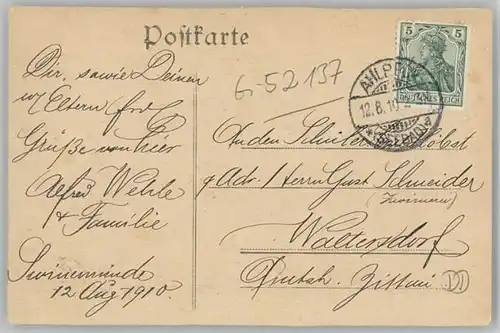 Postkarte
G-52137
Dir, sowie Deinen
w/ Eltern frdl.
Grüße von hier
Alfred Wehle
& Familie
Swinemünde
12 Aug 1910.
5
DEUTSCHES REICH
AHLBE
12.8.10
(SEEBAD) a
An den Schüler
p. Adr. / Herrn Gust Schneider
Waltersdorf
Zittau